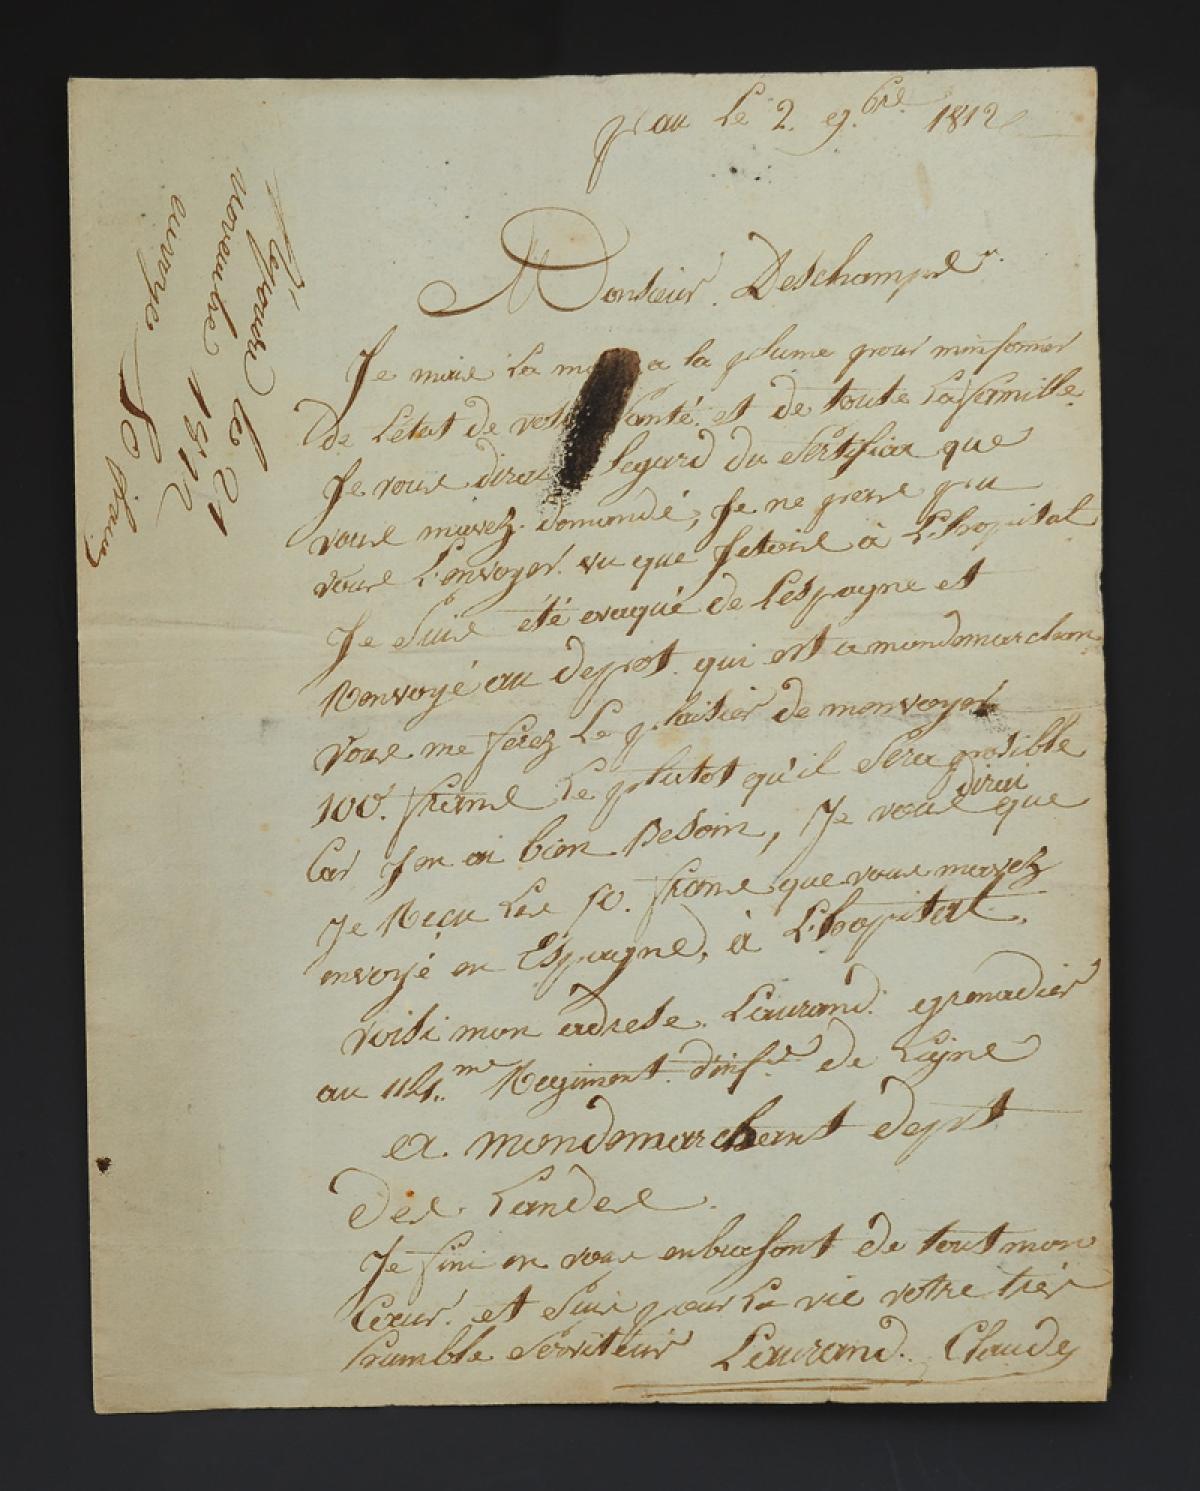 pau le 2. 9.bre 1812
Monsieur. Deschampsr.
Je mais la ma a la plume pour minformer
De Létat de votre Santé. et de toute La famille.
Je vous dirai legard du Sertifiax que
vous mavez. domandé, Je ne peus pu
vous Lenvoyer. vu que Jetois à L'hopital
Je Suis été evaqué de Lespagne et
Renvoyé au depot. qui est a mondemarchan
Vous me ferez Le plaisier de menvoyer
100. frans Le plutot qu'il Sera posible
Car Jen ai bien Besoin, Je vous dirai que
Je Reçu Les 50. frans que vous mavez
envoyé en Espagne, à L'hopital.
voisi mon adrese. Laurand. grenadier
au 114.me Regiment. d'infrie de Ligne
a. mondemarchant dept
des. Landes.
Je fini en vous enbrasont de tout mon
Cœur. et Suis pour La vie votre très
humble Serviteur Laurand. Claude
Repondu le 21
novembre 1812
envoye 50 francs